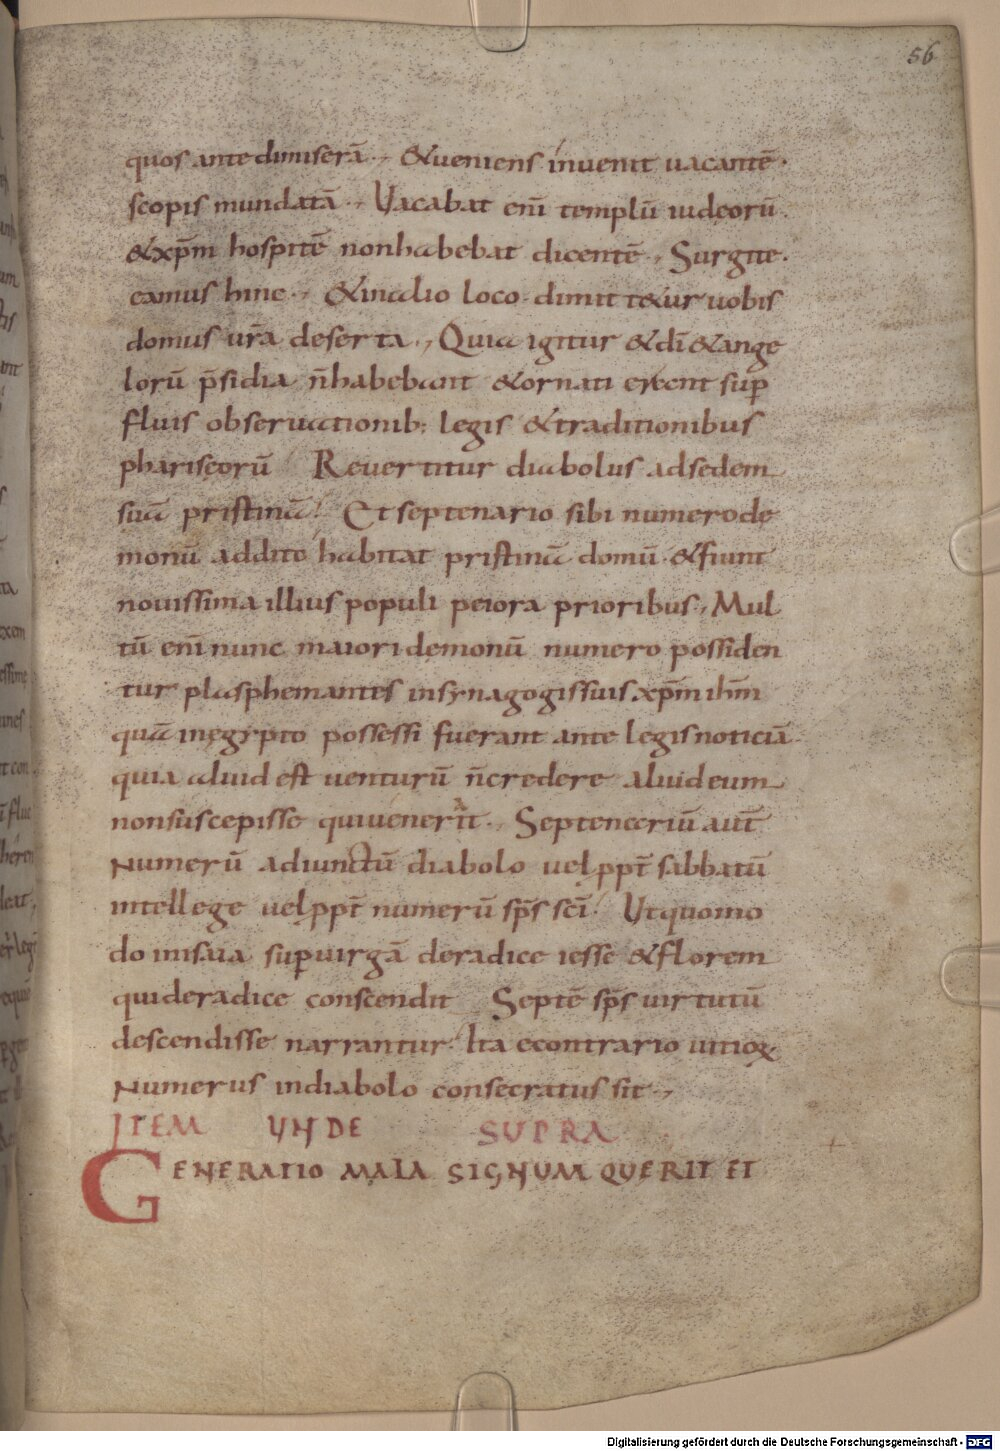 56
quos ante dimiserā. & veniens invenit uacantē.
scopis mundatā. Vacabat enī templū iudeorū.
& xp̄m hospitē non habebat dicentē, Surgite.
eamus hinc. & in alio loco. dimittetur uobis
domus ur̄a deserta, Quia igitur & dī & ange
lorū p̄sidia n̄ habebant & ornati erant sup̄
fluis obseruationib; legis & traditionibus
phariseorū Reuertitur diabolus ad sedem
suā pristinā. Et septenario sibi numero de
monū addito habitat pristinā domū. & fiunt
nouissima illius populi peiora prioribus, Mul
tū enī nunc maiori demonū numero possiden
tur plasphemantes in synagogis suis xp̄m ih̄m
quā in egypto possessi fuerant ante legis noticiā.
quia aliud est venturū n̄ credere aliud eum
non suscepisse qui uenerit. Septenariū aut̄
numerū adiunctū diabolo uel ppt̄ sabbatū
intellege uel ppt̄ numerū sp̄s sc̄i. Ut quomo
do in isaia sup uirgā de radice iesse & florem
qui de radice conscendit Septē sp̄s uirtutū
descendisse narrantur. Ita econtrario uitioꝝ
numerus in diabolo consecratus sit.,
ITEM UNDE SUPRA
GENERATIO MALA SIGNUM QUERIT ET
Digitalisierung gefördert durch die Deutsche Forschungsgemeinschaft - DFG